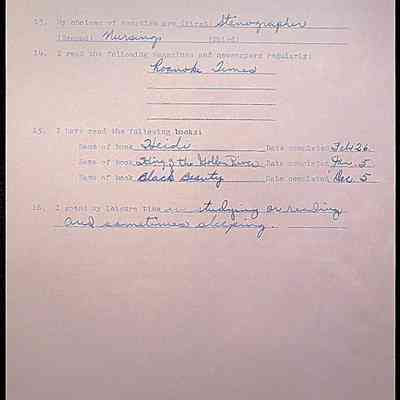 13. My choices of vocation are (first) Stenographer
(Second) Nursing (Third)
14. I read the following magazines and newspapers regularly:
Roanoke Times
15. I have read the following books:
Name of book Heidi Date completed Feb 26
Name of book King of the Golden River Date completed Jan. 5
Name of book Black Beauty Date completed Dec. 5
16. I spend my leisure time in studying or reading
and sometimes sleeping.